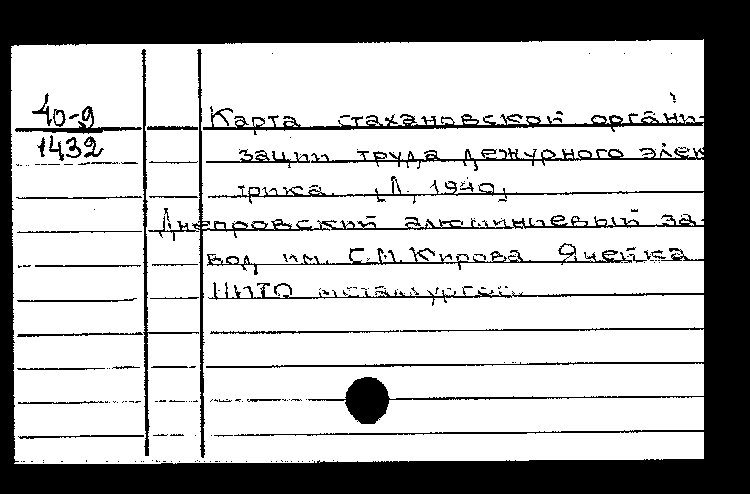 40-9
1432
Карта стахановской органи-
зации труда дежурного элек
трика. [Л, 1940]
Днепровский алюминиевый за-
вод им. С.М. Кирова Ячейка
НИТО металлургов.